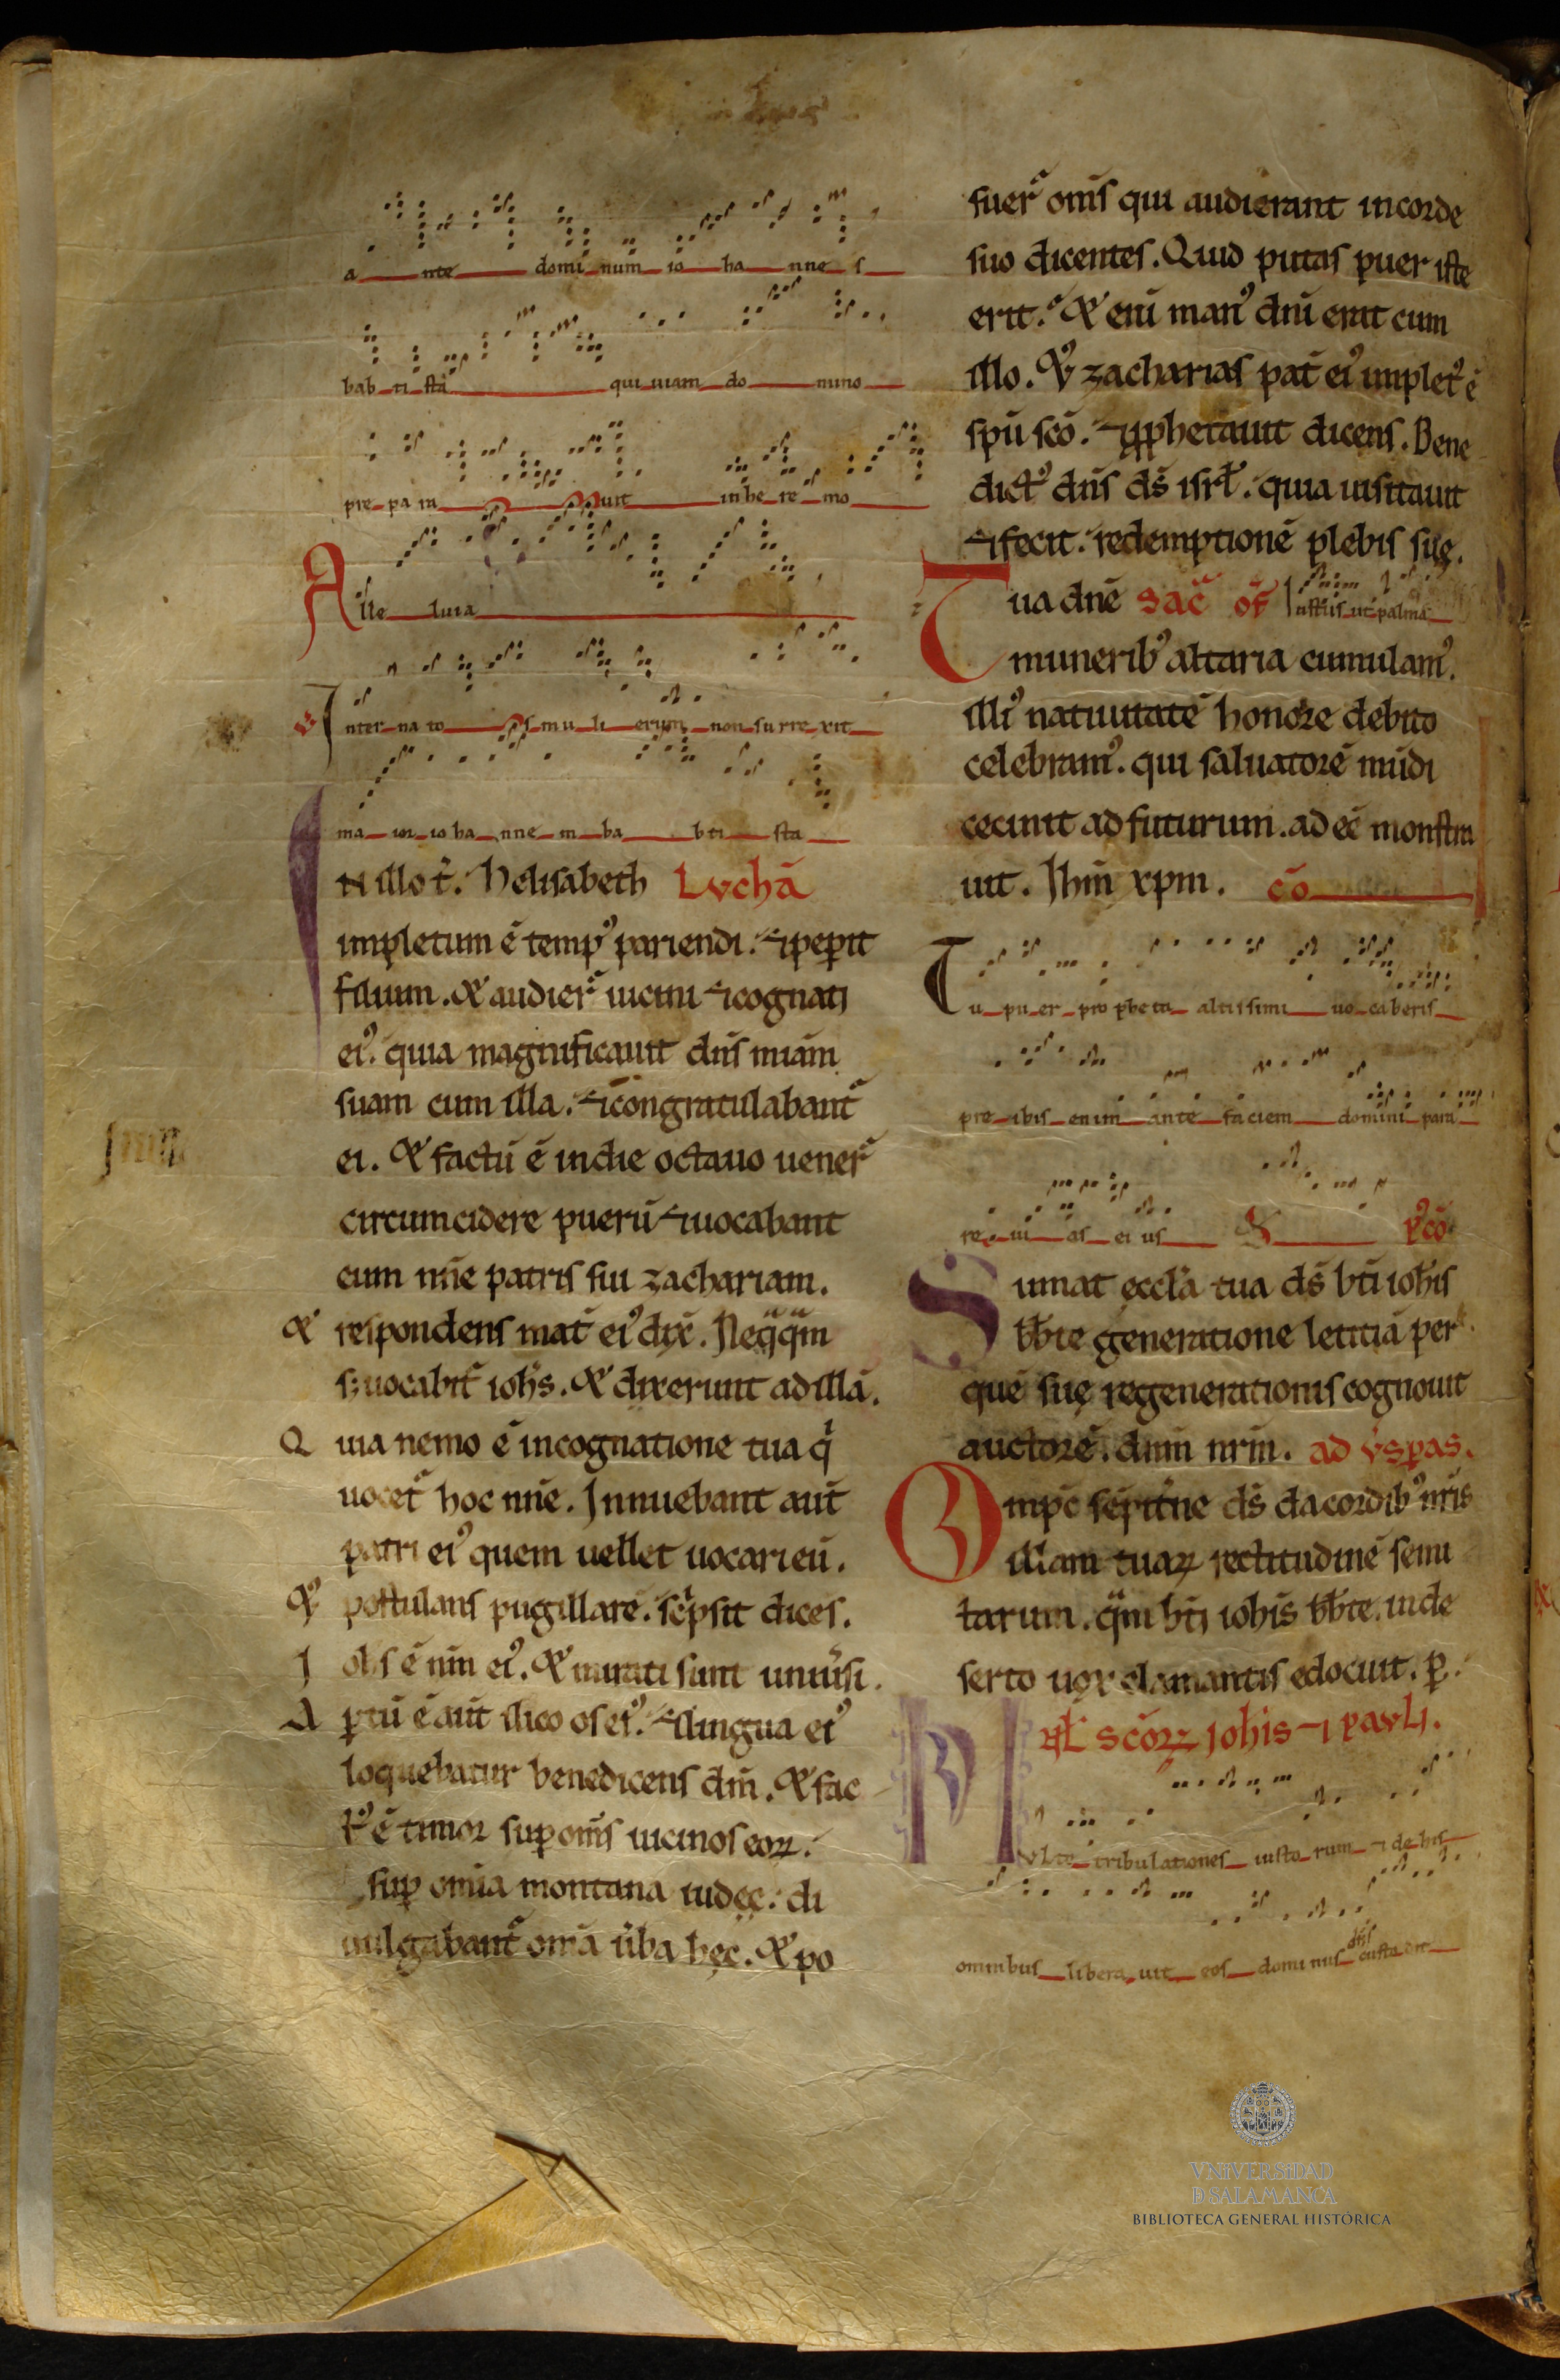 a nte domi num io ha nne s
bab ti sta qui uiam do mino
pre pa ra uit in he re mo
Alle luia
Inter na to s mu li erum non su rre xit
ma ior io ha nne m ba bti sta
N illo t̄. helisabeth Lvchā
impletum ē temp᾿ pariendi. ⁊ peperit
filium. & audier̄ uicini ⁊ cognati
ei᾿. quia magnificauit dn̄s miām
suam cum illa. ⁊ congratulabant̄
ei. & factū ē in die octauo uener̄
circumcidere puerū ⁊ uocabant
eum nn̄e patris sui zachariam.
& respondens mat̄ ei᾿ dix̄. Neq̄q̄m
s; uocabit̄ ioh̄s. & dixerunt ad illā.
Quia nemo ē in cognatione tua q̄
uocet̄ hoc nn̄e. Innuebant aūt
patri ei᾿ quem uellet uocari eū.
& postulans pugillarē. scͥpsit dices.
Iohs ē nm̄ ei᾿. & mirati sunt uniūsi.
Aꝑtū ē aūt ilico os ei᾿. ⁊ lingua ei᾿
loquebatur benedicens dm̄. & fac
t᾿ ē timor suꝑ om̄s uicinos eoꝝ.
suꝑ omīa montana iudęę. di
uulgabant̄ om̄a ūba hęc. & po
suer̄ om̄s qui audierant in corde
suo dicentes. Quid putas puer iste
erit. & enī man᾿ dn̄i erat cum
illo. & zacharias pat̄ ei᾿ implet᾿ ē
sp̄u sc̄o. ⁊ ꝓphetauit dicens. Bene
dict᾿ dn̄s ds̄ isrł. quia uisitauit
⁊ fecit redemptionē plebis suę.
Tua dn̄e sac̄ of̄ Iustus ut palma
munerib᾿ altaria cumulam᾿.
illi᾿ natiuitatē honore debito
celebram᾿. qui saluatorē mūdi
cecinit ad futurum. ad eē monstra
uit. Ihm̄ xpm. cō
Tu pu er pro phe ta altissimi uo caberis
pre ibis enim ante faciem domini para
re ui as ei us pͦcō
Sumat ęccla tua ds̄ bt̄i ioh̄is
bb̄te generatione letitiā per
quē suę regenerationis cognouit
auctorē. dnm̄ nrm̄. ad v̄sꝑas.
Omp̄c sēpit̄ne ds̄ da cordib᾿ nr̄is
illam tuaꝝ rectitudinē semi
tarum. q̄m bt̄i ioh̄is bb̄te. in de
serto uox clamantis edocuit. ꝑ.
Nał scōꝝ iohis ⁊ pavli.
Mvlte tribulationes iusto rum ⁊ de his
omnibus libera uit eos domi nus dn̄s custo dit
VNIVERSIDAD
D SALAMANCA
BIBLIOTECA GENERAL HISTÓRICA